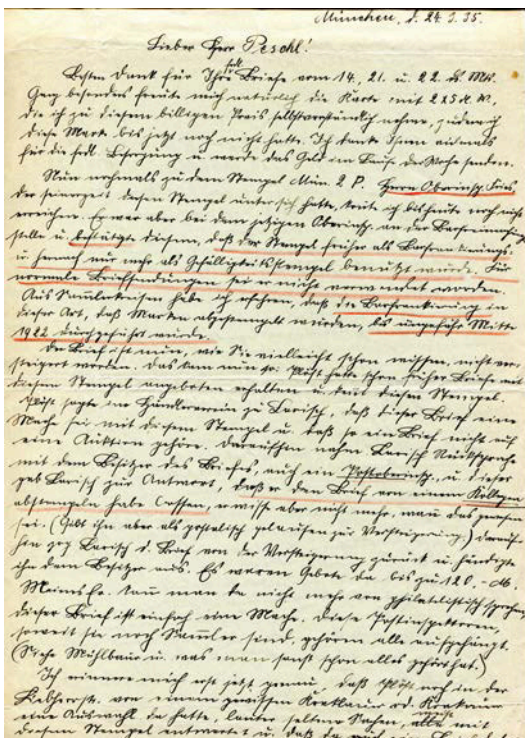 München, d. 24. 3. 35.
Lieber Herr Peschl!
Besten Dank für Ihre frdl. Briefe vom 14., 21. u. 22. ds. Mts.
Ganz besonders freute mich natürlich die Karte mit 2x5 M. W.,
die ich zu diesem billigen Preis selbstverständlich nehme, zudem ich
diese Marke bis jetzt noch nicht hatte. Ich danke Ihnen vielmals
für die frdl. Besorgung u. werde das Geld im Laufe der Woche senden.
Nun nochmals zu dem Stempel Mün. 2 P. Herrn Oberinsp. Fries
der seinerzeit diesen Stempel unter sich hatte, konnte ich bis heute noch nicht
erreichen. Es war aber bei dem jetzigen Oberinsp. an der
stelle u. bestätigte diesen, daß der Stempel früher als Barfrankierungs-
u. hernach nur mehr als Gefälligkeitsstempel benützt wurde. Für
normale Briefsendungen sei er nicht verwendet worden.
Aus Sammlerkreisen habe ich erfahren, daß die Barfrankierung in
dieser Art, daß Marken abgestempelt wurden, bis ungefähr Mitte
1922 durchgeführt wurde.
Der Brief ist nun, wie Sie vielleicht schon wissen, nicht ver-
steigert worden. Das kam nun so: hatte schon früher Briefe mit
diesem Stempel angeboten erhalten u. kennt diesen Stempel.
sagte im Händlerverein zu Larisch, daß dieser Brief eine
Mache sei mit diesem Stempel u. daß so ein Brief nicht auf
eine Auktion gehöre. Daraufhin nahm Larisch Rücksprache
mit dem Besitzer des Briefes, auch ein Postoberinsp., u. dieser
gab Larisch zur Antwort, daß er den Brief von einem Kollegen
abstempeln habe lassen, er wisse aber nicht mehr, wann das gewesen
sei. (Gibt ihn aber als postalisch gelaufen zur Versteigerung.) Darauf-
hin zog Larisch d. Brief von der Versteigerung zurück u. händigte
ihn dem Besitzer aus. Es waren Gebote da bis zu 120.- M.
Meines E. kann man da nicht mehr von philatelistisch sprechen,
dieser Brief ist einfach eine Mache. Diese Postinspektoren,
soweit sie noch Sammler sind, gehören alle aufgehängt.
(Siehe Mühlbaur u. was man sonst schon alles gehört hat.)
Ich erinnere mich erst jetzt genau, daß noch in der
von einem gewissen od. Krakauer
eine Auswahl da hatte, lauter seltene Sachen, alle mit
diesem Stempel entwertet u. daß